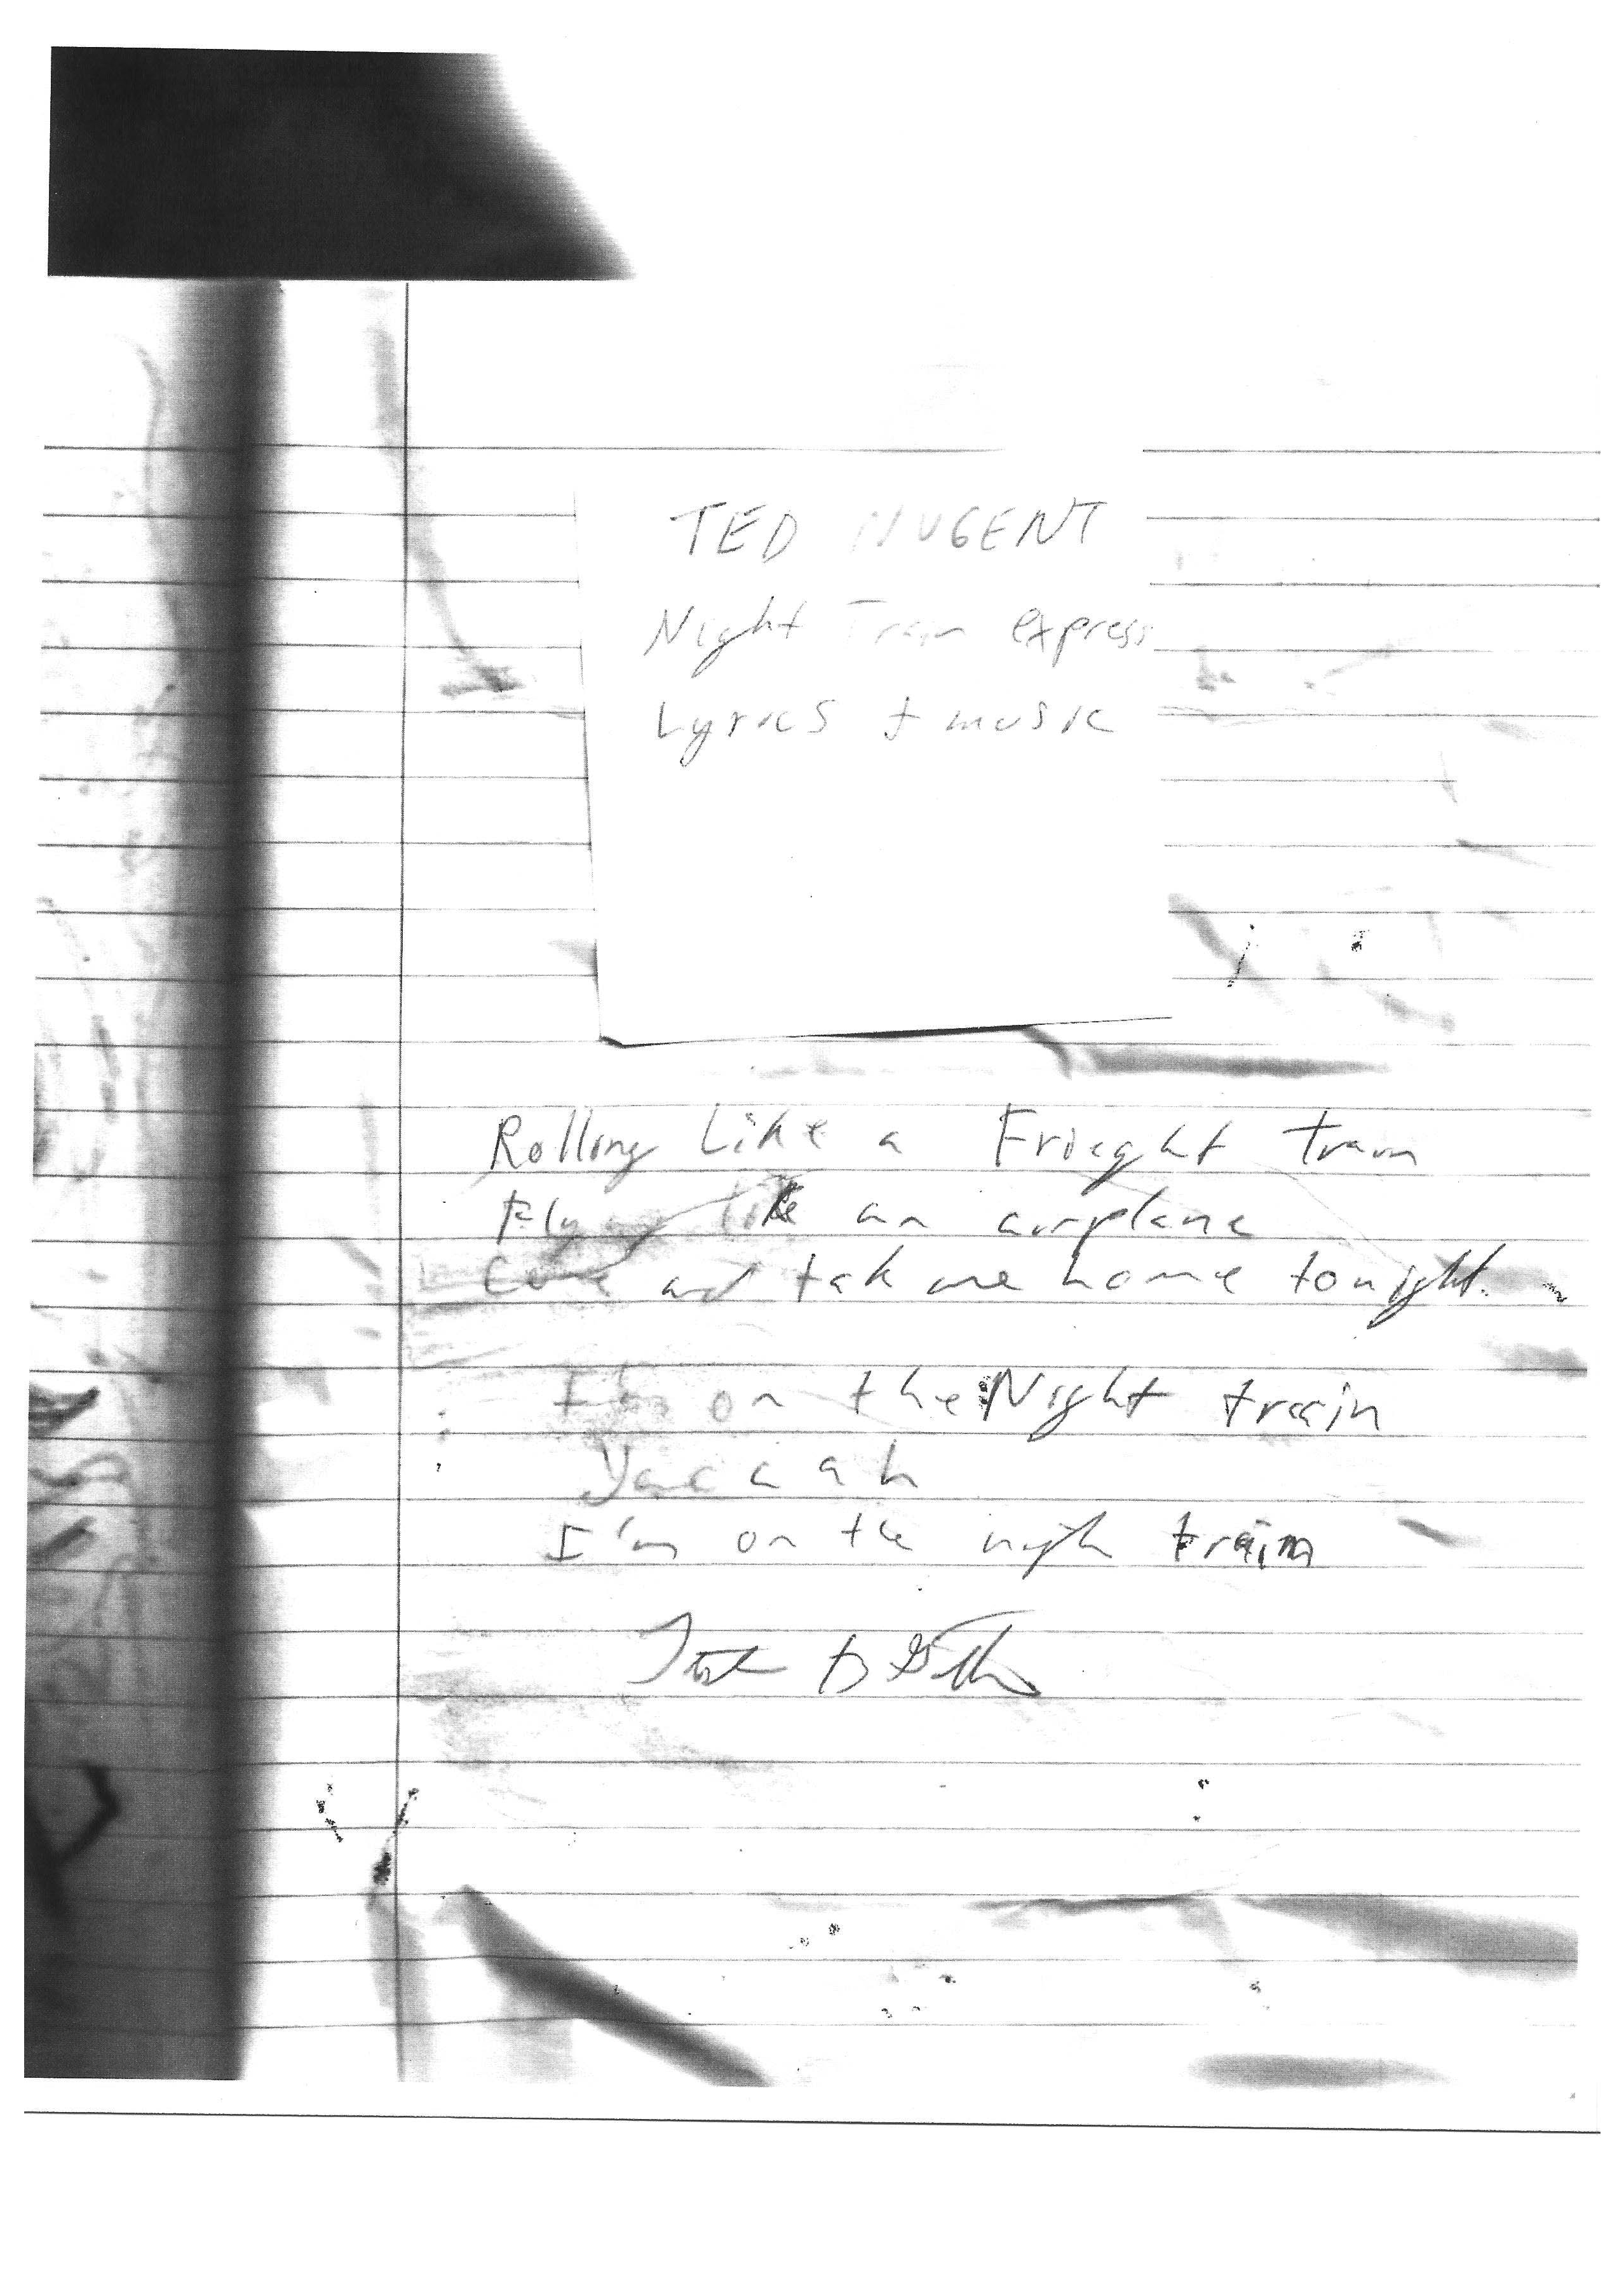 TED NUGENT
Night Train express
Lyrics + music
Rolling Like a Frieght train
Fly like an airplane
Come and tak me home tonight.
I'm on the Night train
Yaaaaah
I'm on the nigh train